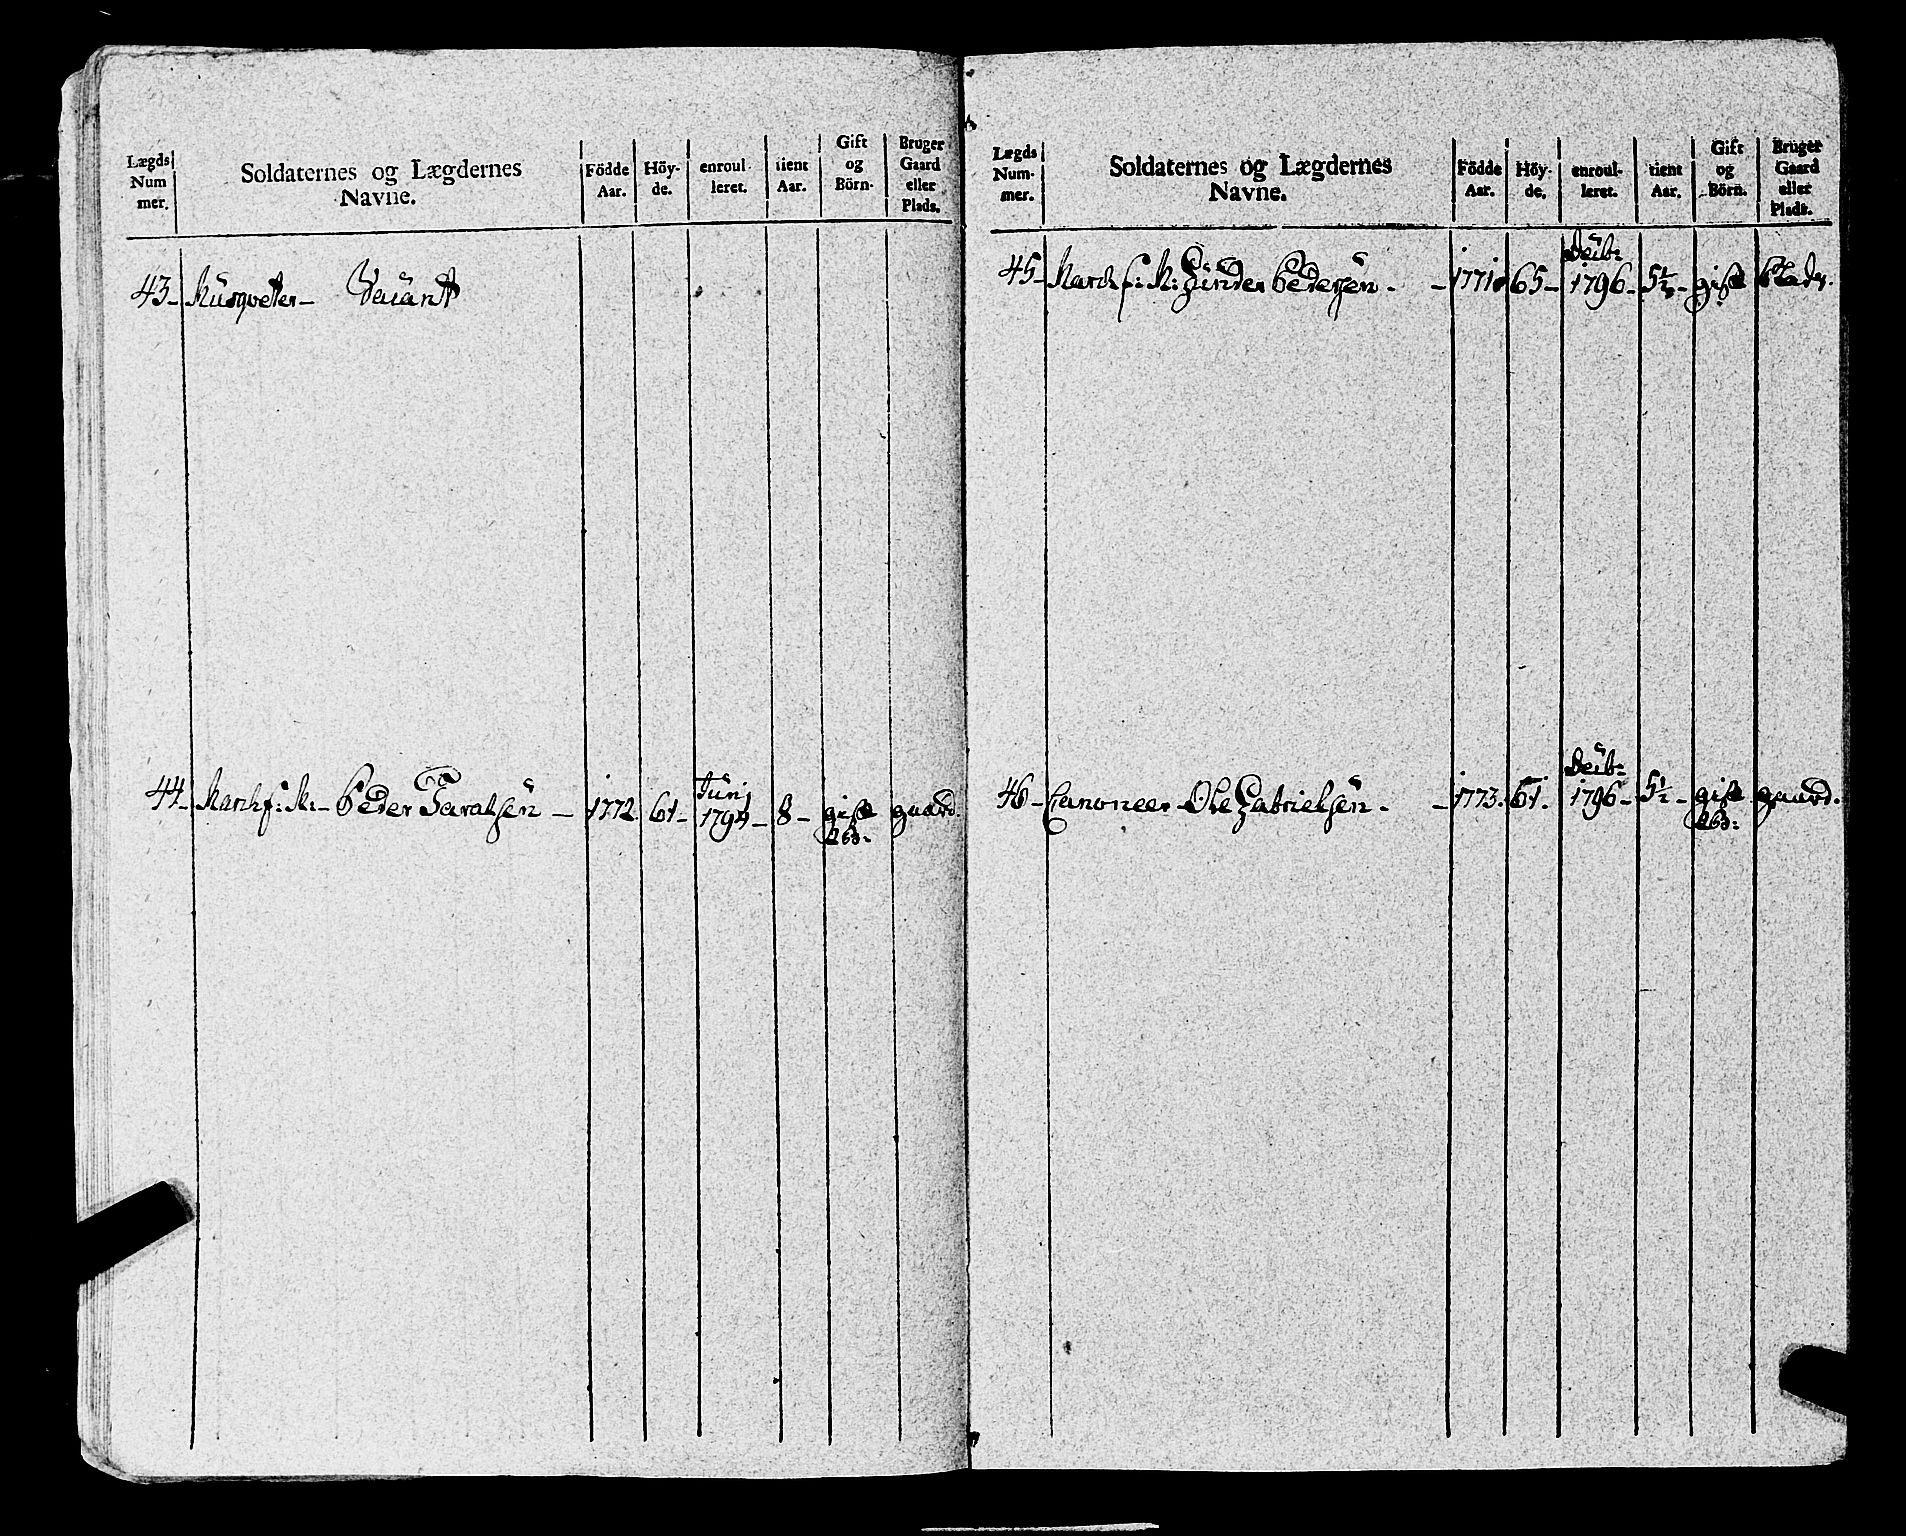 Lægds Num mer.
Soldaternes og Lægdernes Navne.
Födde Aar.
Höy-de.
enroul-leret.
tient Aar.
Gift og Börn.
Bruger Gaard eller Plads.
43- Musqveter- Vacant
44- March f: M:- Peder Taralsen - 1772 61- Junj 1794- 8- gift 2 b: gaard.
Lægds Num-mer.
Soldaternes og Lægdernes Navne.
Födde Aar.
Höy-de.
enroul-leret.
tient Aar.
Gift og Börn.
Bruger Gaard eller Plads.
45- March f: M: Gunder Pedersen - - 1771 65- 1796- 5½- gift Plads.
46- Canoneer Ole Gabrielsen - - 1773. 61. 1796- 5½- gift 2 b: gaard.